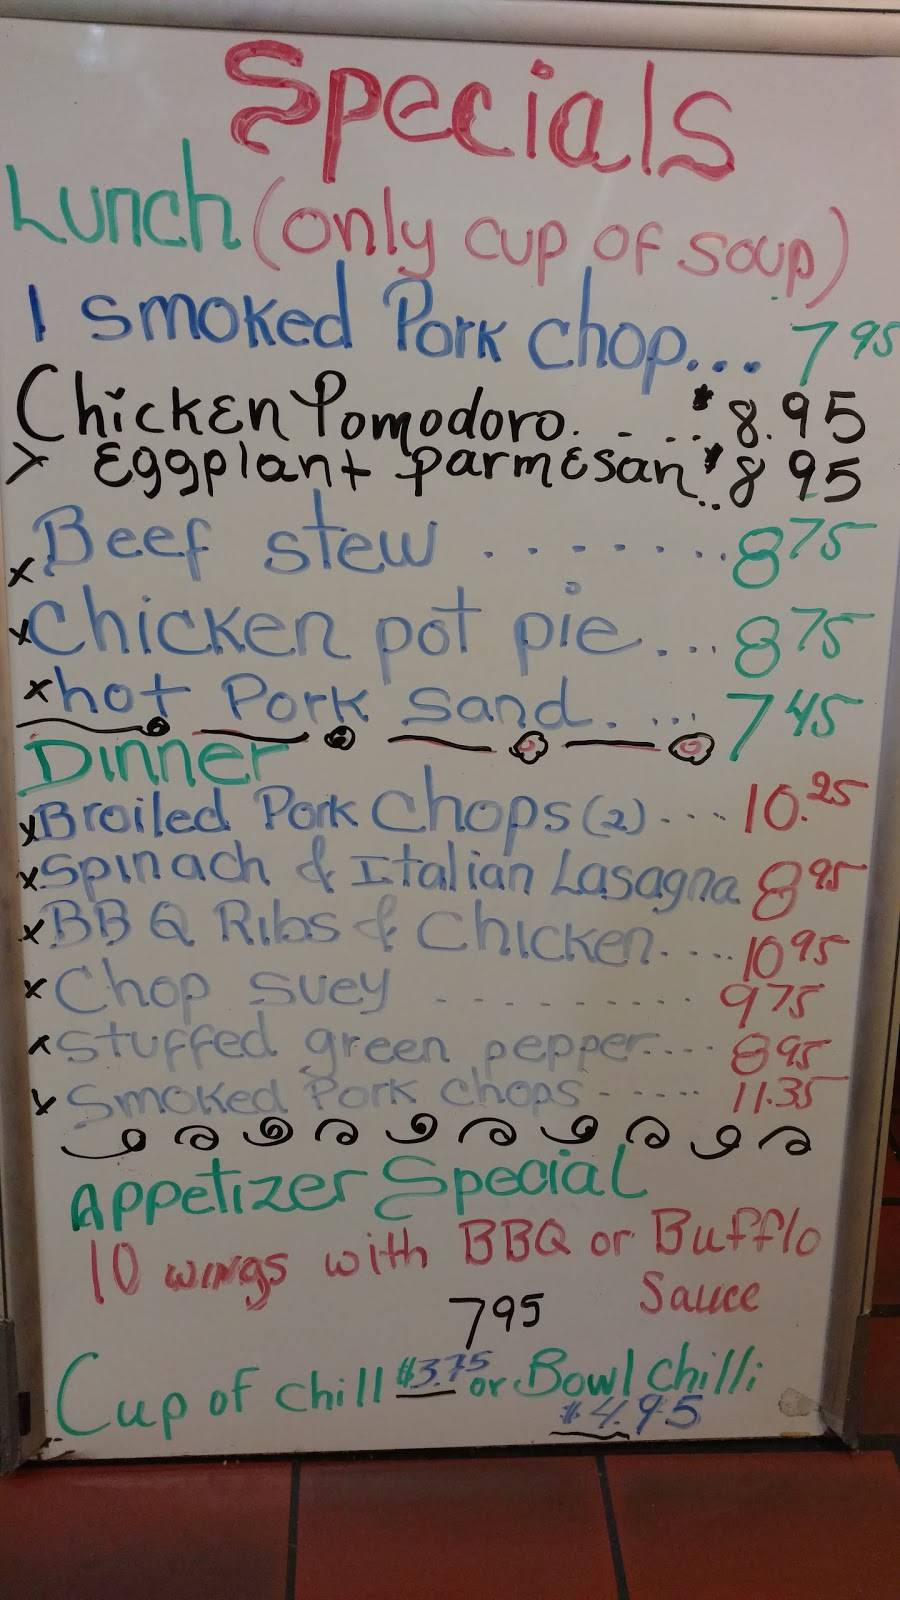 Specials
Lunch (only cup of soup)
1 smoked Pork chop... 7 95
Chicken Pomodoro. - . .. $8.95
> Eggplant parmesan.. $8 95
x Beef stew . . . . . . . . 8 75
x Chicken pot pie... 8 75
x hot Pork sand. ... 7 45
Dinner
x Broiled Pork Chops (2) ---- 10.25
x Spinach & Italian Lasagna 8 95
x BBQ Ribs & Chicken.... 10 95
x Chop suey - - - - - - - - - - 9 75
x Stuffed green pepper.... 8 95
x Smoked Pork chops ----- 11.35
Appetizer Special
10 wings with BBQ or Bufflo
Sauce
795
Cup of chill $3.75 or Bowl chilli
$4.95